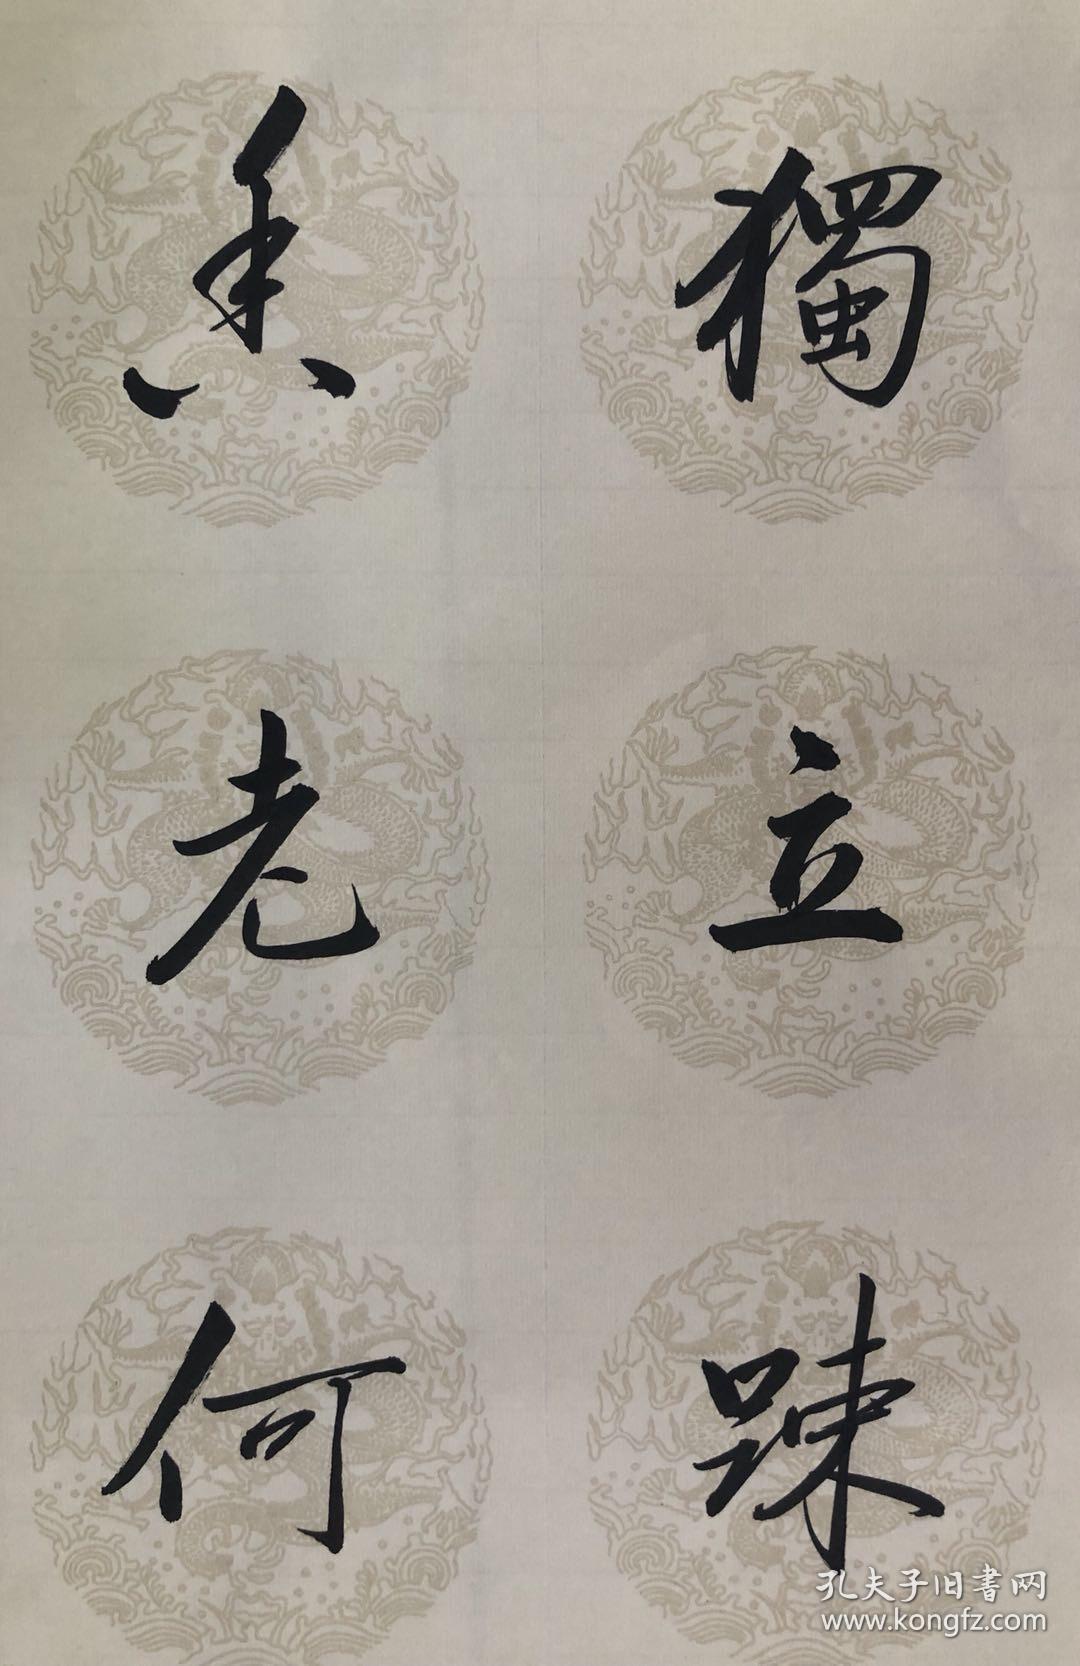 獨立踈
香老何
孔夫子旧書网
www.kongfz.com